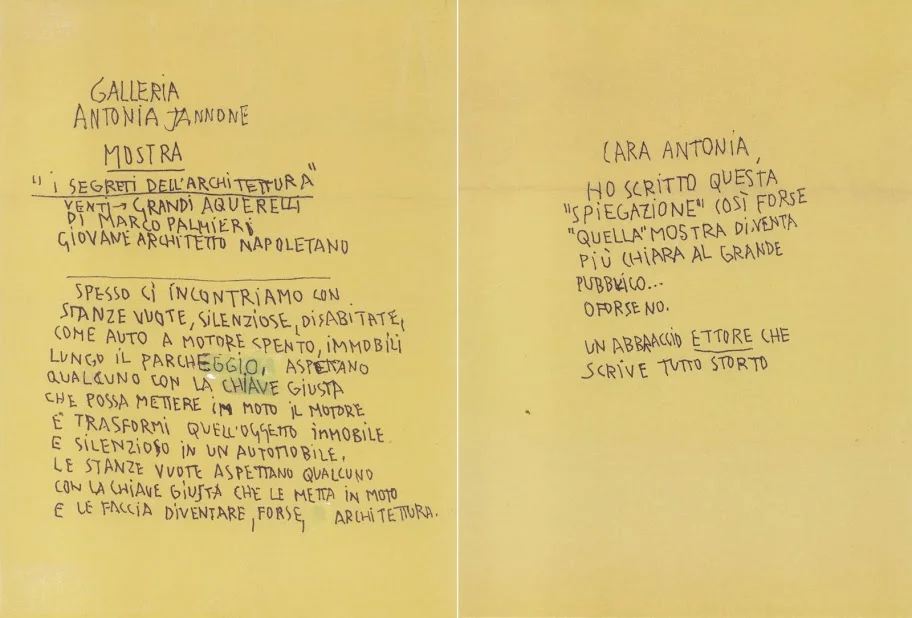 GALLERIA
ANTONIA JANNONE
MOSTRA
"I SEGRETI DELL'ARCHITETTURA"
VENTI → GRANDI AQUERELLI
DI MARCO PALMIERI
GIOVANE ARCHITETTO NAPOLETANO
SPESSO CI INCONTRIAMO CON
STANZE VUOTE, SILENZIOSE, DISABITATE,
COME AUTO A MOTORE SPENTO, IMMOBILI
LUNGO IL PARCHEGGIO, ASPETTANO
QUALCUNO CON LA CHIAVE GIUSTA
CHE POSSA METTERE IN MOTO IL MOTORE
E TRASFORMI QUELL'OGGETTO IMMOBILE
E SILENZIOSO IN UN AUTOMOBILE.
LE STANZE VUOTE ASPETTANO QUALCUNO
CON LA CHIAVE GIUSTA CHE LE METTA IN MOTO
E LE FACCIA DIVENTARE, FORSE, ARCHITETTURA.
CARA ANTONIA,
HO SCRITTO QUESTA
"SPIEGAZIONE" COSÌ FORSE
"QUELLA" MOSTRA DIVENTA
PIÙ CHIARA AL GRANDE
PUBBLICO...
O FORSE NO.
UN ABBRACCIO ETTORE CHE
SCRIVE TUTTO STORTO